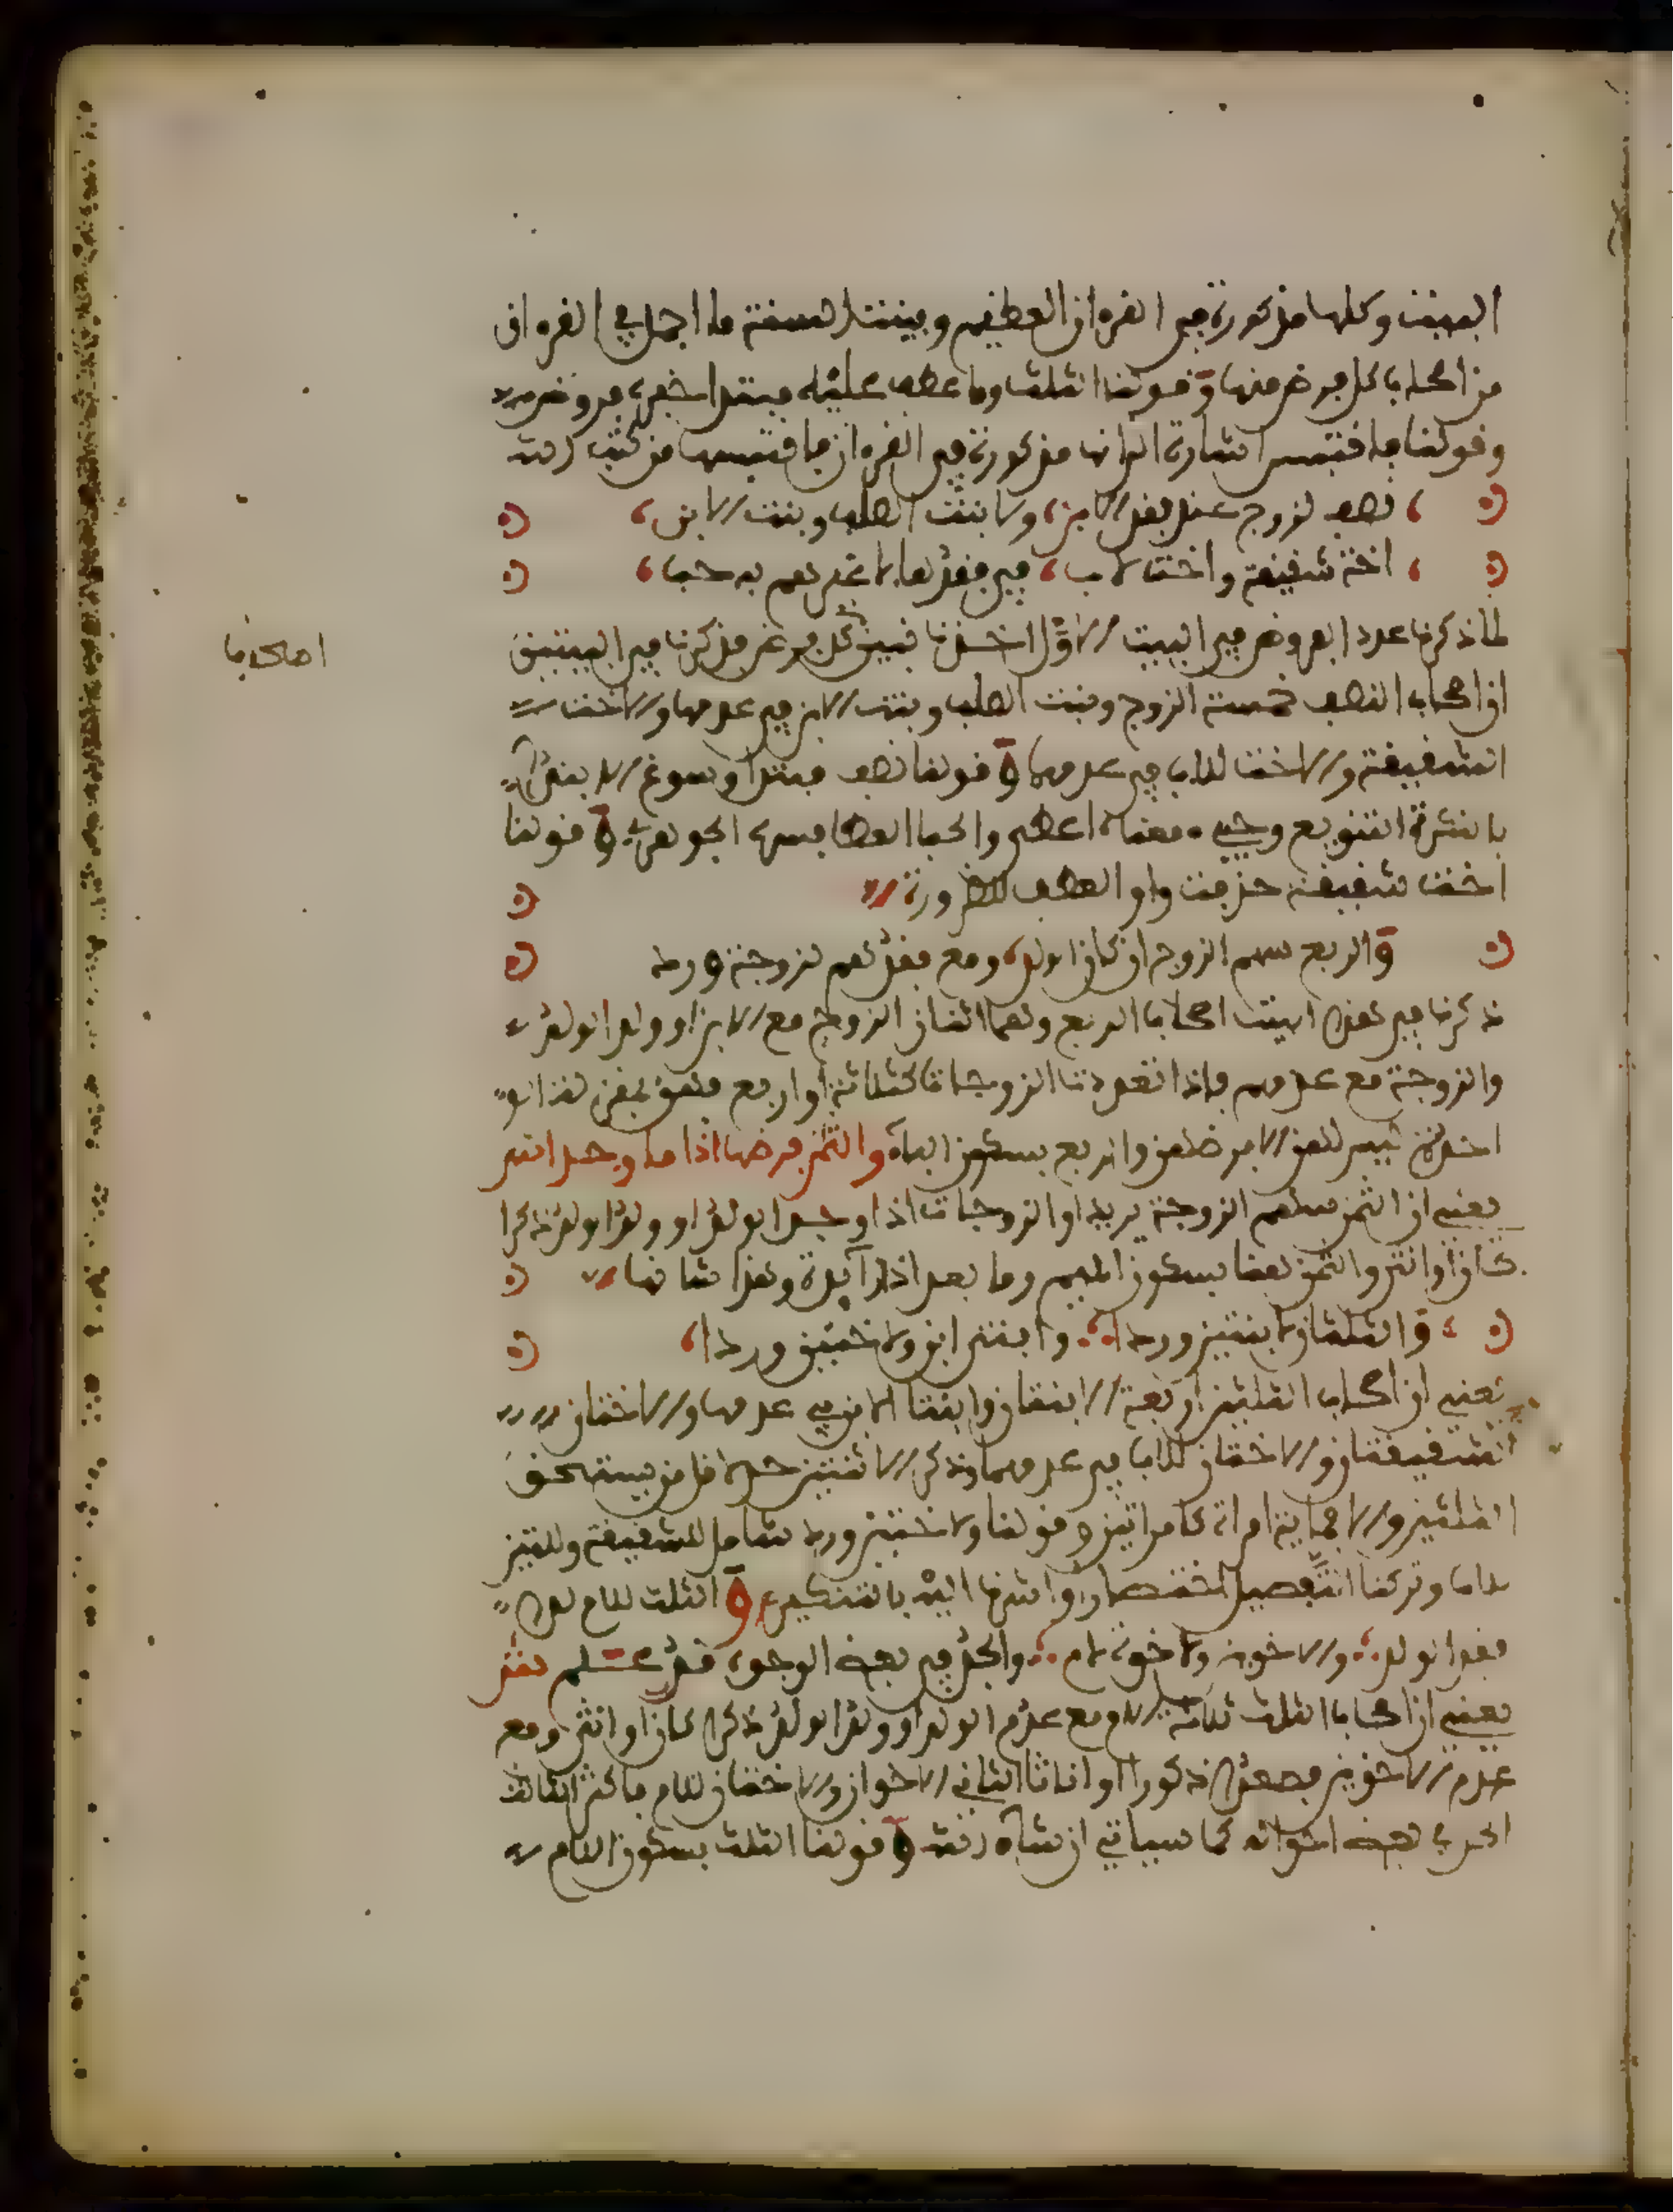 البيت وكلها مذكورة في القرءان العظيم وبينت السنة ما اجمل في القرءان
من اصحاب كل فرض منها وقولنا الثلث وما عطف عليه مبتدا خبره فروض
وقولنا فاقتبس اشارة الى انها مذكورة في القرءان فاقتبسها من كتب الله
نصف لزوج عند فقد الابن، ولابنت الصلب وبنت الابن،
اخت شقيقة واخت لاب، في فقدها لا غيرهم به حب،
لما ذكرنا عدد الفروض في البيت الاول اخذنا نبين كل فرض فذكرنا في البيتين
اصحاب
ان اصحاب النصف خمسة الزوج وبنت الصلب وبنت الابن في عدمها والاخت
الشقيقة والاخت للاب في عدمها وقولنا نصف مبتدا وسوغ الابتداء
بالنكرة التنويع وحبي معناه اعطي والحبا العطا فسره الجوهري وقولنا
اخت شقيقة حذفت واو العطف للضرورة
والربع سهم الزوج ان كان الولد، ومع فقدهم لزوجة ورد
ذكرنا في هذا البيت اصحاب الربع وهما اثنان الزوج مع الابن او ولد الولد
والزوجة مع عدمهم فاذا تعددت الزوجات كثلاثة او اربع فهو بينهن لذا لو
اخذن ليس لهن الا فرضهن والربع بسكون الباء والثمن فرضها اذا ما وجد انتر
يعني ان الثمن سهم الزوجة يريد او الزوجات اذا وجد الولد او ولد الولد ذكرا
كان او انثى والثمن هنا بسكون الميم وما بعد اذا زائدة وهذا شانها
والثلثان لابنتين وردا، وابنتي ابن ولاختين وردا،
يعني ان اصحاب الثلثين اربعة الابنتان وابنتا الابن في عدمها والاختان
الشقيقتان والاختان للاب في عدمهما وذكر الاثنتين حد اقل من يستحق
الثلثين والا فماية امراة كامراتين وقولنا ولاختين ورد شامل للشقيقة وللتين
للاب وتركنا التفصيل اختصارا واشرنا اليه بالتنكير والثلث للام لدى
فقد الولد، والاخوة ولاخوة لام، والجد في بعض الوجوه قد علم
يعني ان اصحاب الثلث ثلاثة الام مع عدم الولد او ولد الولد ذكرا كان او انثى ومع
عدم الاخوين فصعدا ذكورا او اناثا الثاني الاخوان والاختان للام فاكثر الثالث
الجد في بعض احواله كما سياتي ان شاء الله وقولنا الثلث بسكون اللام